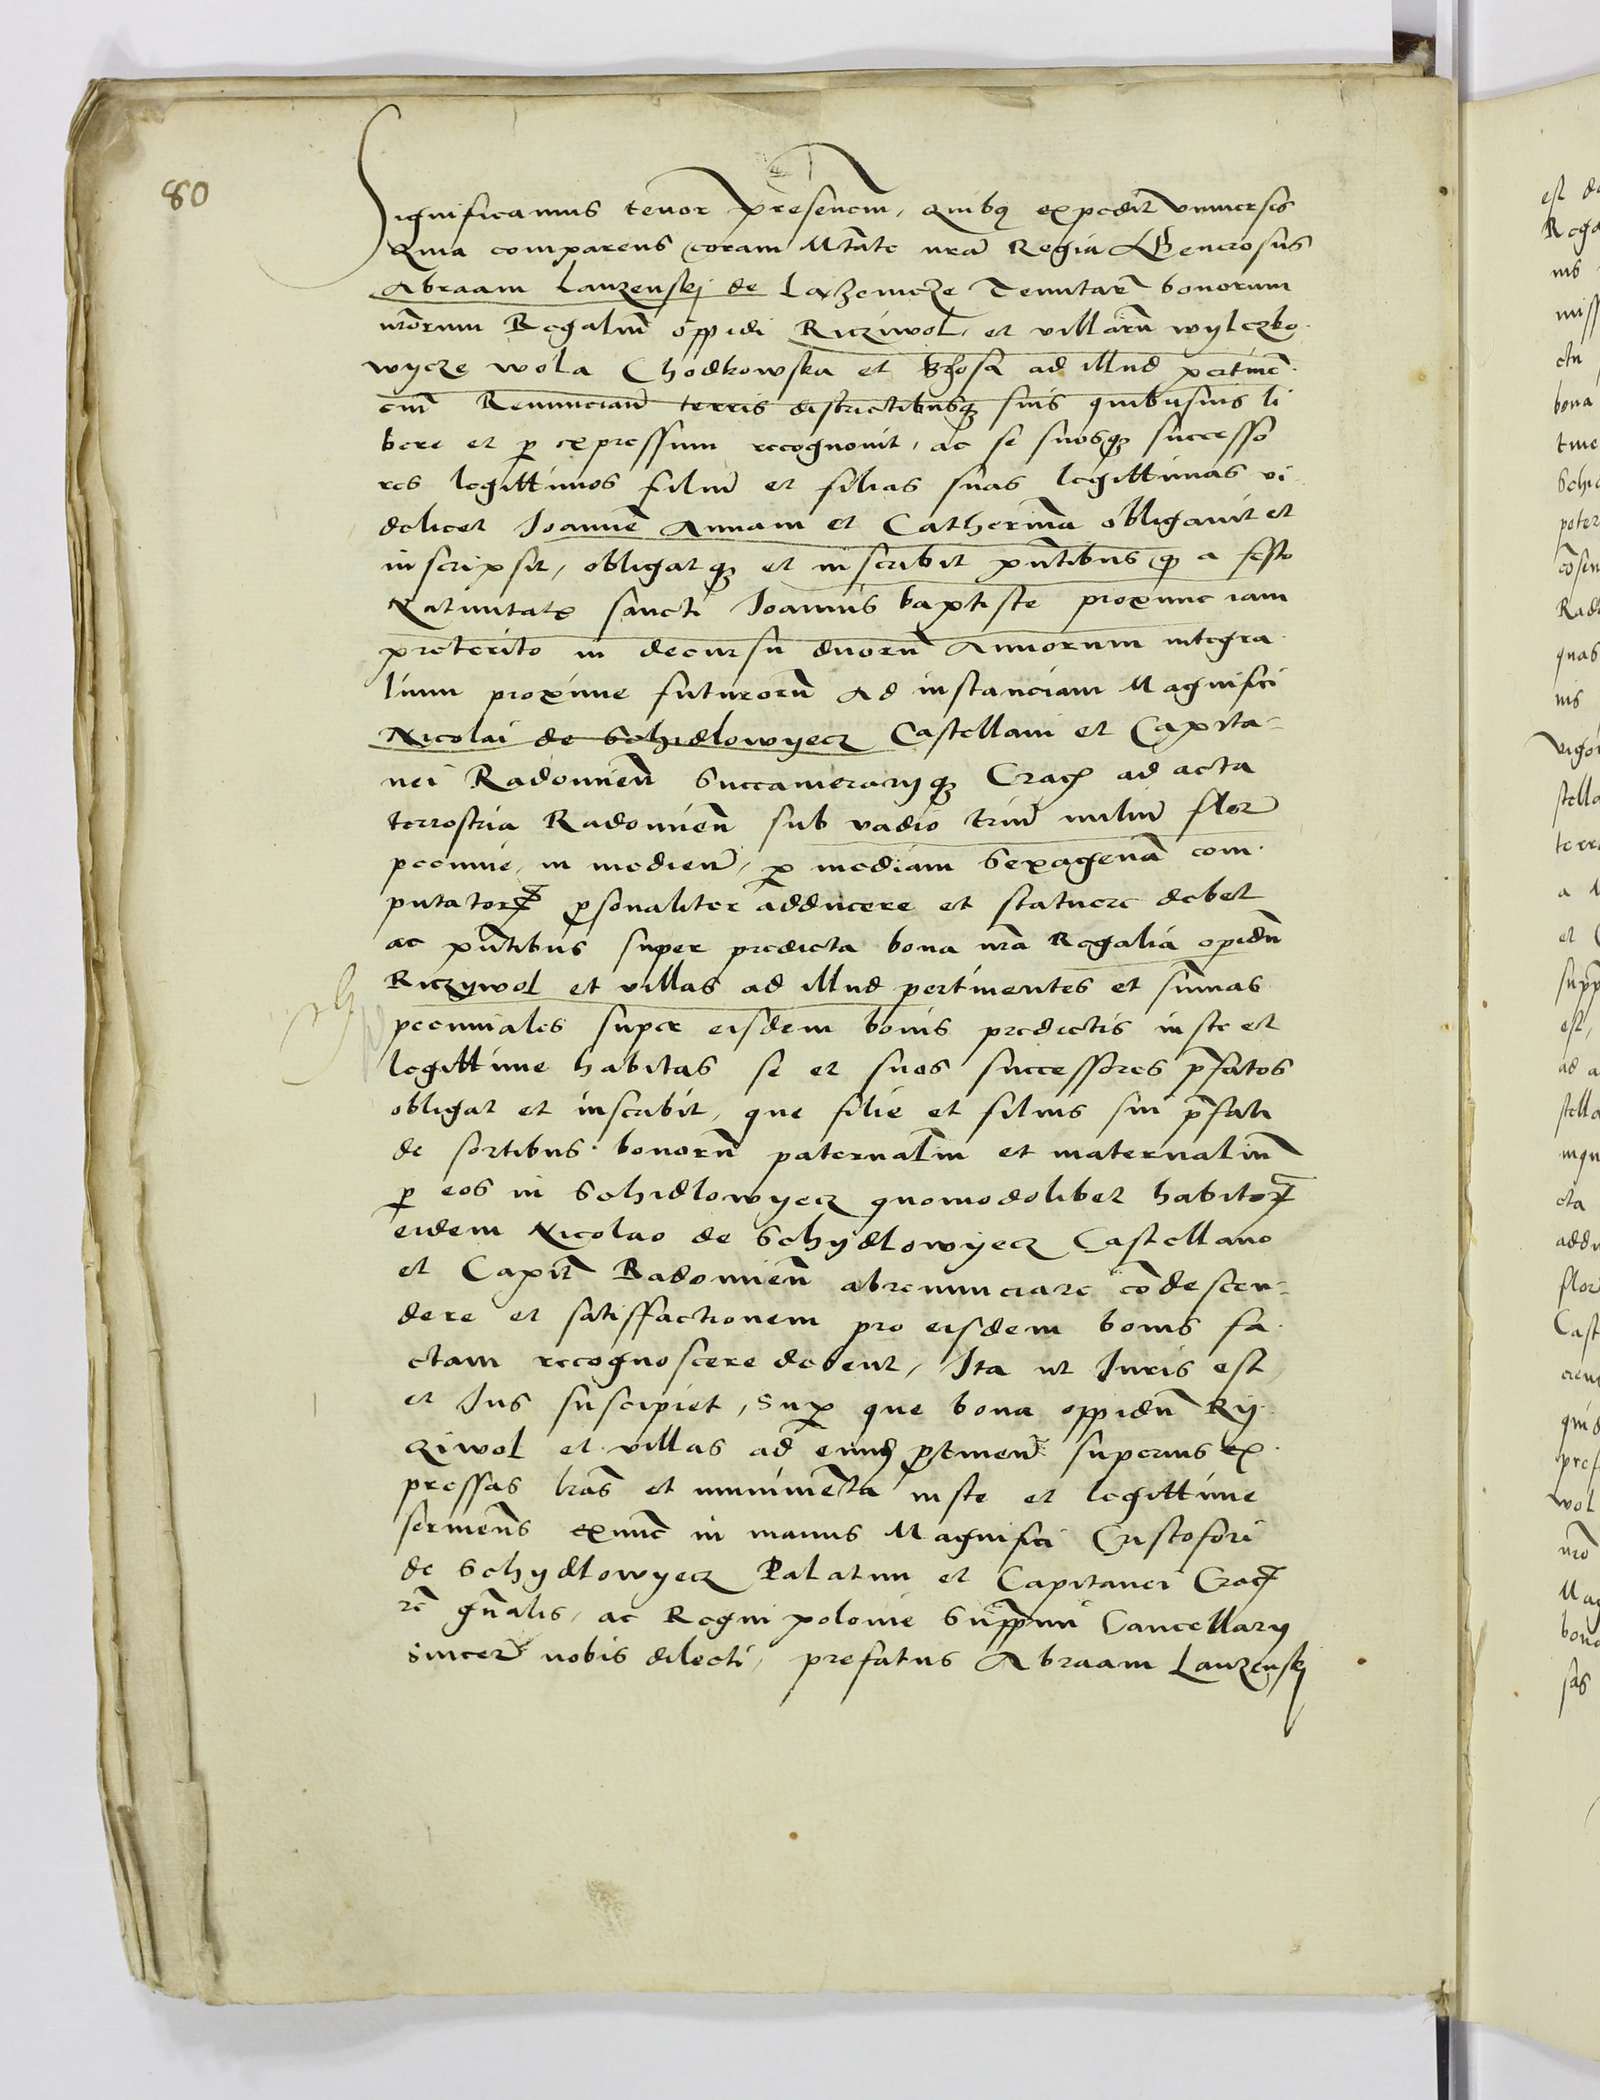 80
Significamus tenor̄ presencm̄, Quibꝰ expedit vniuersis
Quia comparens coram Mtāte nrā Regia Generosus
Abraam Lanzenskj de Laxzenicze Tenutarꝰ bonorum
nrōrum Regaliū oppidi Ricziwol, et villarū wylczko
wycze wola Chodkowska et Brzosa ad illud pertinē.
cum Renunciacō terris districtibusqꝫ suis quibusuis li
bere et ꝑ expressum recognouit, ac se suosqꝫ successo
res legittimos filiū et filias suas legittimas vi
delicet Joannē Annam et Catherinā obligauit et
inscripsit, obligatqꝫ et inscribit pn̄tibus qꝫ a festo
Natiuitatꝭ sancti Joannis baptiste proxime iam
preterito in decursu duorū Annorum integra
lium proxime futurorū ad instanciam Magnifici
Nicolai de Schidlowyecz Castellani et Capita=
nei Radomieñ Succamerarijqꝫ Cracꝭ ad acta
terrestria Radomieñ sub vadio triū miliū flor̄
pecunie, in medieta, ꝑ mediam sexagenā com
putatorꝝ ꝑsonaliter adducere et statuere debet
ac pn̄tibus super predicta bona nrā Regalia opidū
Riczywol et villas ad illud pertinentes et sum̄as
pecuniales super eisdem bonis predictis iuste et
legittime habitas se et suos successores p̄fatos
obligat et inscribit, que filie et filius sui p̄fati
de sortibus bonorū paternaliū et maternaliū
ꝑ eos in Schidlowyecz quomodolibet habitorꝝ
eidem Nicolao de Schydlowyecz Castellano
et Capitꝭ Radomieñ abrenunciare cōdescen=
dere et satisfactionem pro eisdem bonis fa
ctam recognoscere debent, Ita ut Juris est
et Jus suscipiet, Suꝑ que bona oppidū Ry
cziwol et villas ad eundꝫ ꝑtineñ superius ex
pressas lrās et munimēta iuste et legittime
seruiens exnūc in manus Magnifici Cristofori
de Schydlowyecz Palatini et Capitanei Cracꝭ
rc̄ gn̄alis, ac Regni polonie Supp̄mi Cancellarij
Sincerꝰ nobis dilecti, prefatus Abraam Lanzenskj